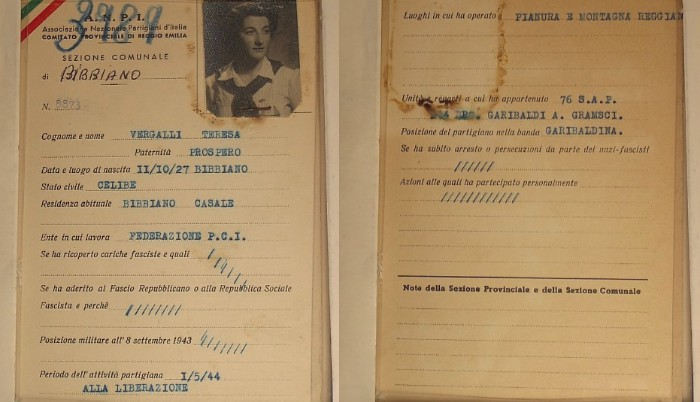 A. N. P. I.
Associazione Nazionale Partigiani d'Italia
COMITATO PROVINCIALE DI REGGIO EMILIA
SEZIONE COMUNALE
di BIBBIANO
N.
Cognome e nome VERGALLI TERESA
Paternità PROSPERO
Data e luogo di nascita 11/10/27 BIBBIANO
Stato civile CELIBE
Residenza abituale BIBBIANO CASALE
Ente in cui lavora FEDERAZIONE P.C.I.
Se ha ricoperto cariche fasciste e quali
Se ha aderito al Fascio Repubblicano o alla Repubblica Sociale
Fascista e perchè ////////
Posizione militare all'8 settembre 1943
Periodo dell'attività partigiana 1/5/44
ALLA LIBERAZIONE
Luoghi in cui ha operato PIANURA E MONTAGNA REGGIAN
Unità e reparti a cui ha appartenuto 76 S.A.P.
GARIBALDI A. GRAMSCI.
Posizione del partigiano nella banda GARIBALDINA.
Se ha subito arresto o persecuzioni da parte dei nazi-fascisti
//////
Azioni alle quali ha partecipato personalmente
////////////
Note della Sezione Provinciale e della Sezione Comunale